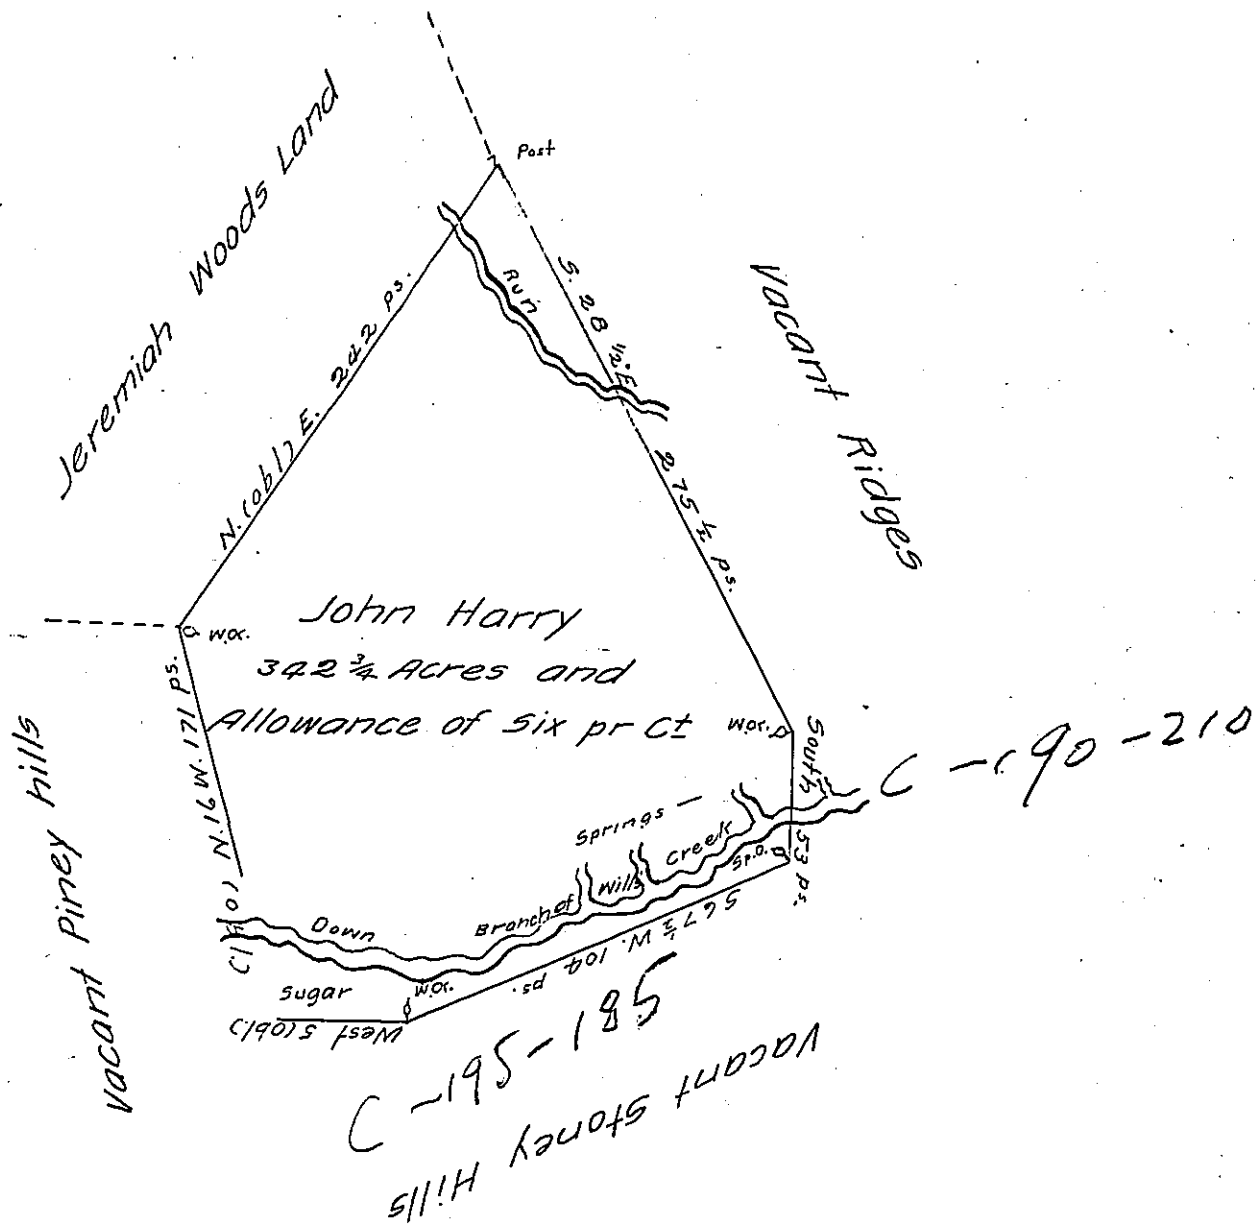 Post
Jeremiah Woods Land
N. (obl) E. 242 ps.
Run
S. 28 ½ E. 275 ½ ps.
Vacant Ridges
John Harry
342 ¾ Acres and
Allowance of Six pr Ct
W.O.
W.O.
South 53 ps.
C - 190 - 210
N. 16 W. 171 ps.
(obl)
Vacant Piney hills
Springs
Down Branch of Wills Creek
Sp.O.
S 67 ½ W. 104 ps.
Sugar
W.O.
West 5 (obl)
C - 195 - 185
Vacant Stoney Hills